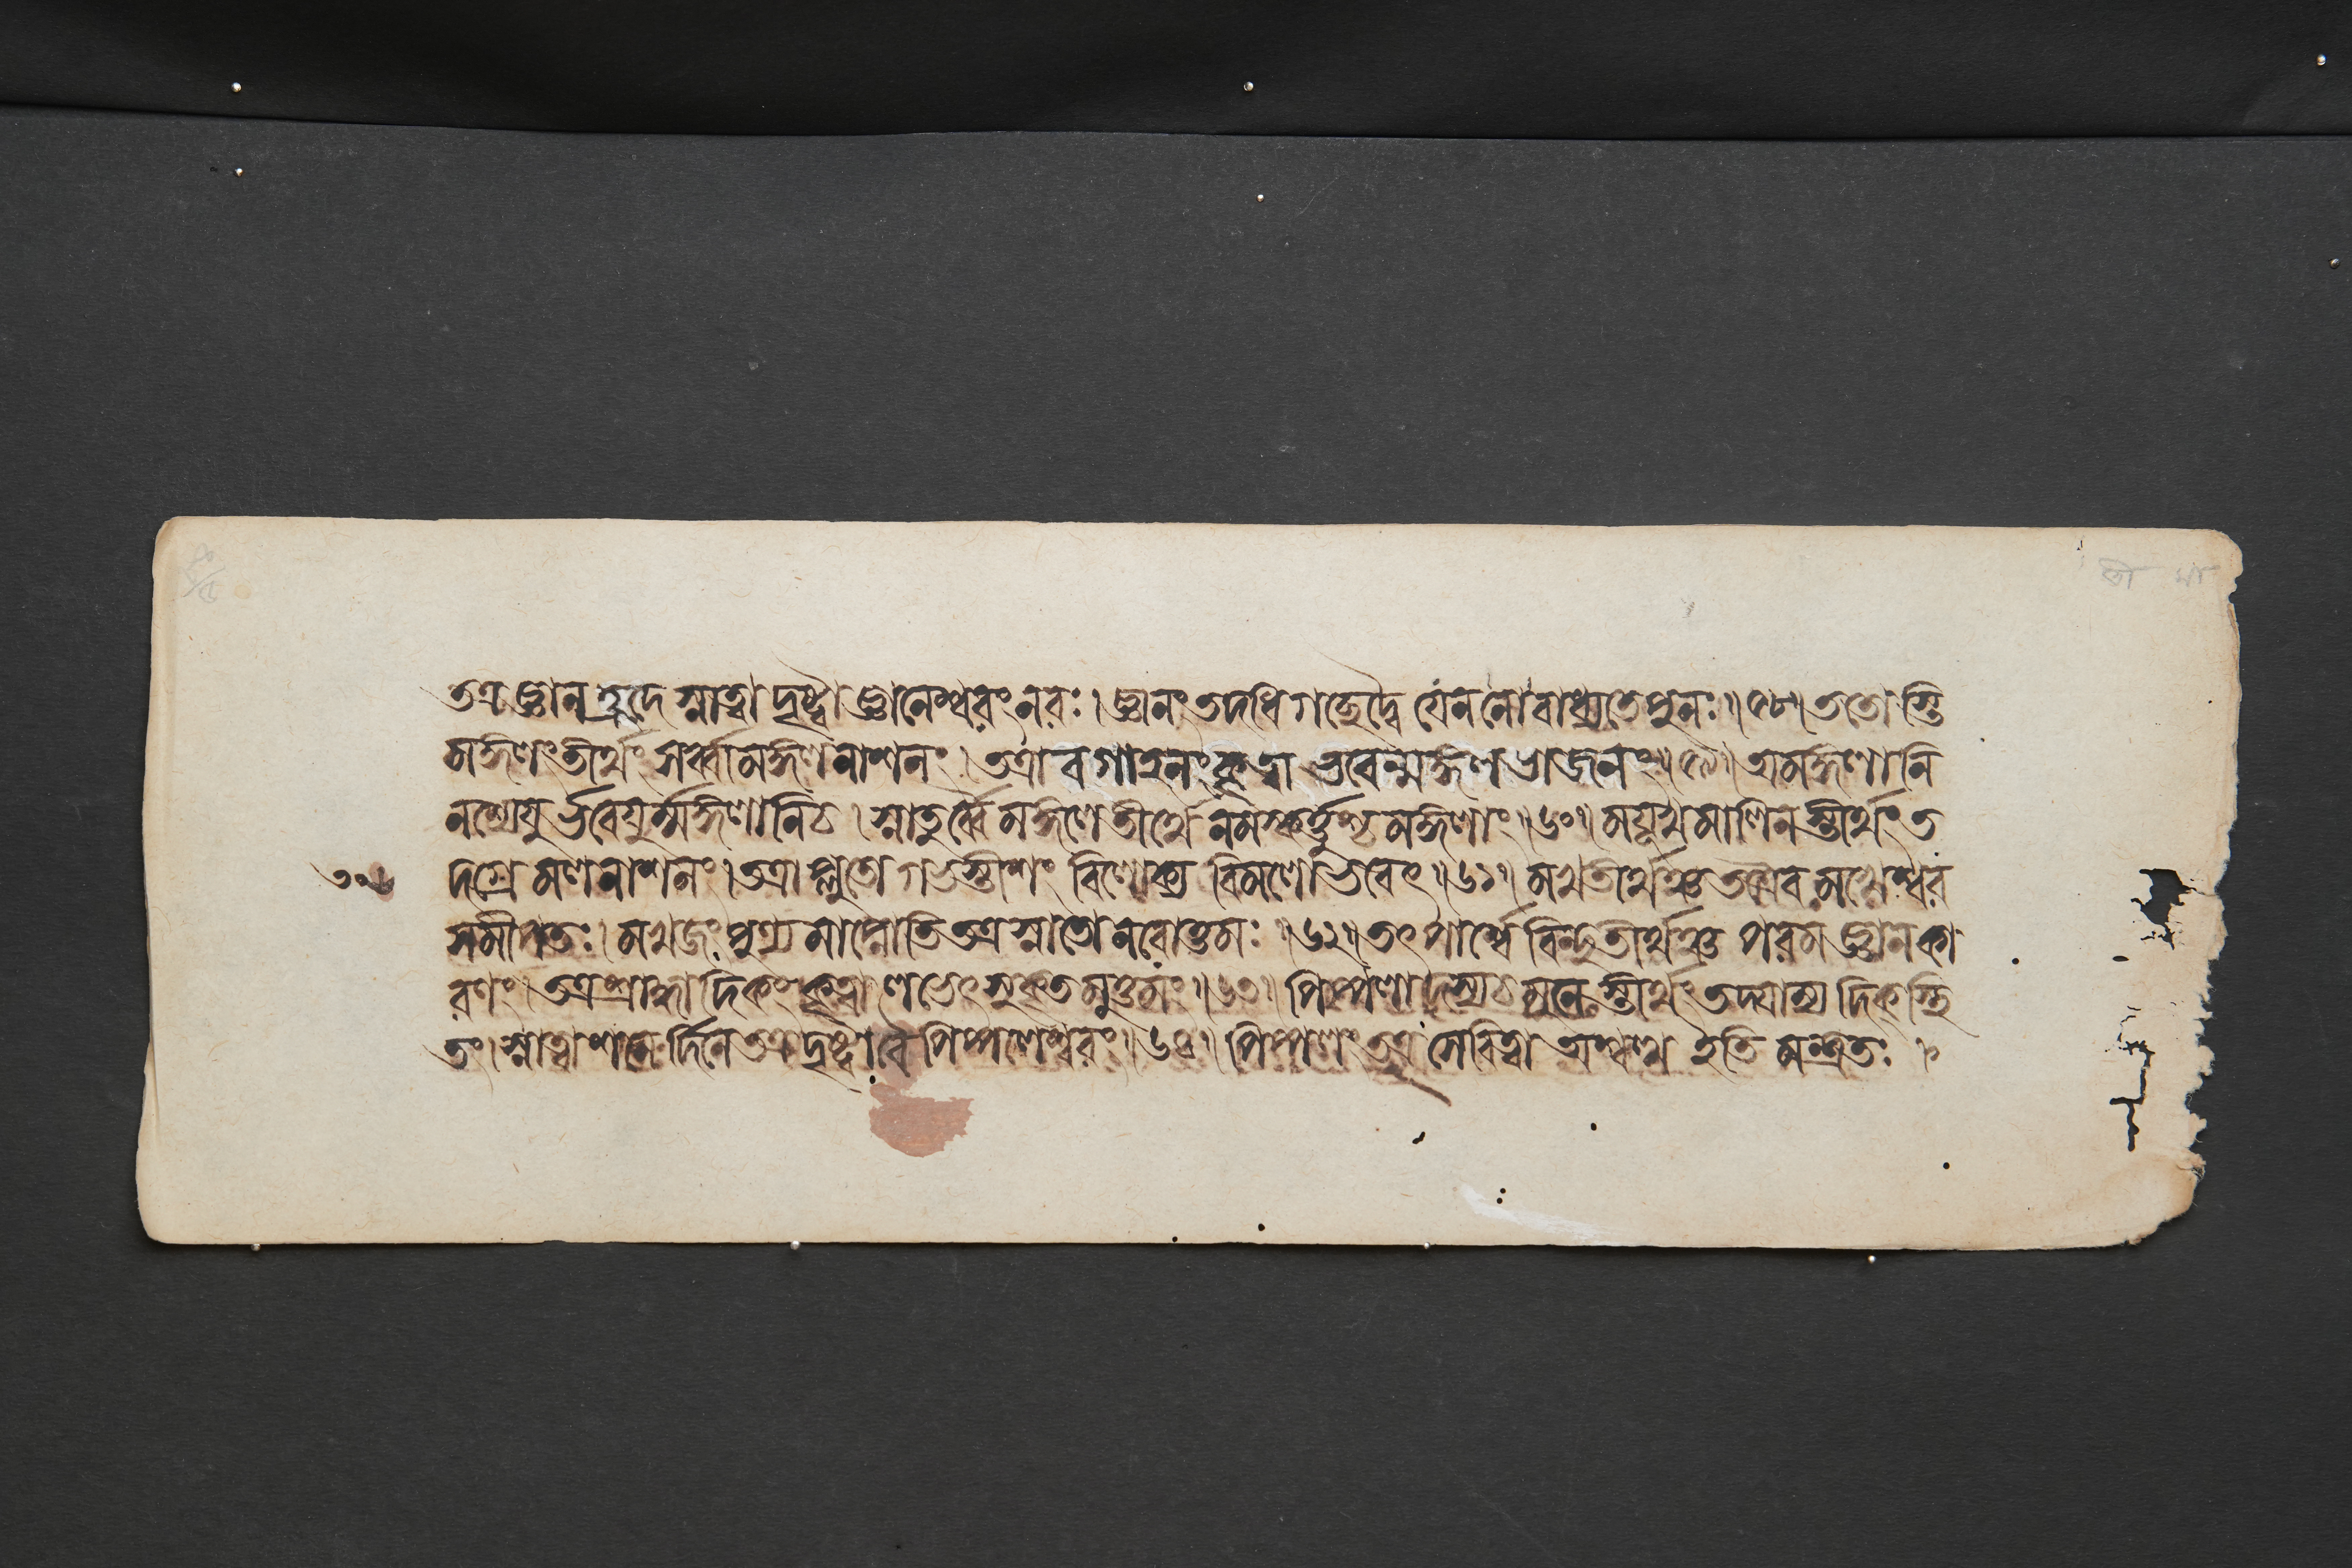 তত্র জ্ঞানহ্রদে স্নাত্বা দৃষ্ট্বা জ্ঞানেশ্বরং নরঃ । জ্ঞানং তদধিগচ্ছেদ্বৈ যেন নো বাধ্যতে পুনঃ ॥ ৫৮ ॥ ততোস্তি
মঙ্গলং তীর্থং সর্ব্বামঙ্গলনাশনং । তত্রাবগাহনং কৃত্বা ভবেন্মঙ্গলভাজনং ॥ ৫৯ ॥ অমঙ্গলানি
নশ্যেযু র্ভবেযুর্ম্মঙ্গলানি চ । স্নাতুর্ব্বৈ মঙ্গলে তীর্থে নমস্কর্ত্তুশ্চ মঙ্গলাং ॥ ৬০ ॥ ময়ূখমালিনস্তীর্থং ত
৩০৬ দগ্রে মলনাশনং । তত্রাপ্লুতো গভস্তীশং বিলোক্য বিমলো ভবেৎ ॥ ৬১ ॥ মখতীর্থঞ্চ তত্রৈব মখেশ্বর
সমীপতঃ । মখজং পুণ্যমাপ্নোতি তত্র স্নাতো নরোত্তমঃ ॥ ৬২ ॥ তৎপার্শ্বে বিন্দুতীর্থঞ্চ পরমজ্ঞানকা
রণং । তত্র শ্রাদ্ধাদিকং কৃত্বা লভেৎ সুকৃতমুত্তমং ॥ ৬৩ ॥ পিপ্পলাদস্য চ মুনেস্তীর্থং তদ্যাম্যদিক্স্থি
তং । স্নাত্বা শনের্দিনে তত্র দৃষ্ট্বা বৈ পিপ্পলেশ্বরং ॥ ৬৪ ॥ পিপ্পলং তত্র সেবিত্বা অশ্বত্থ ইতি মন্ত্রতঃ ।